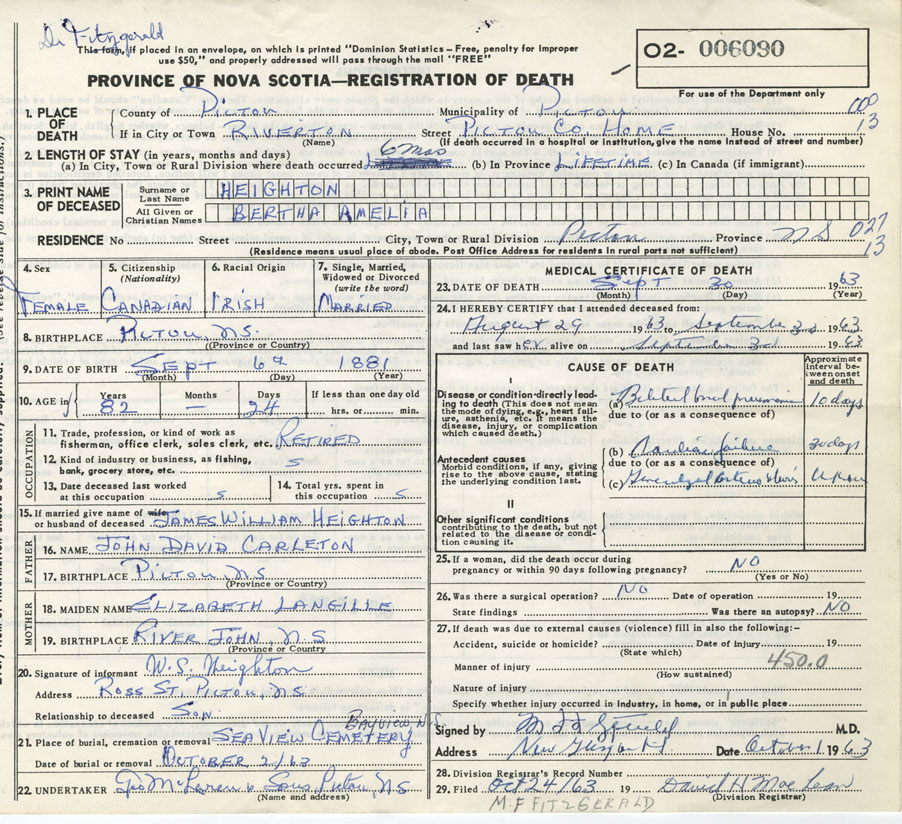 Dr Fitzgerald
This form, if placed in an envelope, on which is printed "Dominion Statistics – Free, penalty for improper
use $50," and properly addressed will pass through the mail "FREE"
PROVINCE OF NOVA SCOTIA—REGISTRATION OF DEATH
O2- 006090
For use of the Department only
1. PLACE OF DEATH
County of Pictou Municipality of Pictou 000
If in City or Town Riverton Street Pictou Co. Home House No. 13
(Name) (If death occurred in a hospital or institution, give the name instead of street and number)
2. LENGTH OF STAY (in years, months and days)
(a) In City, Town or Rural Division where death occurred 6 mos (b) In Province Lifetime (c) In Canada (if immigrant)
3. PRINT NAME OF DECEASED
Surname or Last Name HEIGHTON
All Given or Christian Names BERTHA AMELIA
RESIDENCE No Street City, Town or Rural Division Pictou Province N S 027
13
(Residence means usual place of abode. Post Office Address for residents in rural parts not sufficient)
4. Sex Female
5. Citizenship (Nationality) Canadian
6. Racial Origin Irish
7. Single, Married, Widowed or Divorced (write the word) Married
8. BIRTHPLACE Pictou, N.S.
(Province or Country)
9. DATE OF BIRTH Sept 6th 1881
(Month) (Day) (Year)
10. AGE in Years 82 Months — Days 24 If less than one day old
hrs. or min.
OCCUPATION
11. Trade, profession, or kind of work as
fisherman, office clerk, sales clerk, etc. Retired
12. Kind of industry or business, as fishing,
bank, grocery store, etc. S
13. Date deceased last worked
at this occupation S
14. Total yrs. spent in
this occupation S
15. If married give name of wife
or husband of deceased James William Heighton
FATHER
16. NAME John David Carleton
17. BIRTHPLACE Pictou, N S
(Province or Country)
MOTHER
18. MAIDEN NAME Elizabeth Langille
19. BIRTHPLACE River John, N S
(Province or Country)
20. Signature of informant W. S. Heighton
Address Ross St, Pictou, N.S.
Relationship to deceased Son
Bayview N.S
21. Place of burial, cremation or removal Seaview Cemetery
Date of burial or removal October 2/63
22. UNDERTAKER Geo McLaren & Sons, Pictou, NS
(Name and address)
MEDICAL CERTIFICATE OF DEATH
23. DATE OF DEATH Sept 30 1963
(Month) (Day) (Year)
24. I HEREBY CERTIFY that I attended deceased from:
August 29 1963 to September 3rd 1963
and last saw her alive on September 3rd 1963
CAUSE OF DEATH
Approximate interval between onset and death
I
Disease or condition directly leading to death (This does not mean the mode of dying, e.g., heart failure, asthenia, etc. It means the disease, injury, or complication which caused death.)
(a) Bilateral pneumonia 10 days
due to (or as a consequence of)
Antecedent causes
Morbid conditions, if any, giving rise to the above cause, stating the underlying condition last.
(b) Cardiac failure 30 days
due to (or as a consequence of)
(c) Generalized
II
Other significant conditions
contributing to the death, but not related to the disease or condition causing it.
25. If a woman, did the death occur during
pregnancy or within 90 days following pregnancy? NO
(Yes or No)
26. Was there a surgical operation? NO Date of operation 19
State findings Was there an autopsy? NO
27. If death was due to external causes (violence) fill in also the following:–
Accident, suicide or homicide? Date of injury 19
(State which)
Manner of injury 450.0
(How sustained)
Nature of injury
Specify whether injury occurred in industry, in home, or in public place
Signed by M F Fitzgerald M.D.
Address New Glasgow Date October 1 1963
28. Division Registrar's Record Number
29. Filed Oct 24/63 19 David H MacLean
(Division Registrar)
M F FITZGERALD